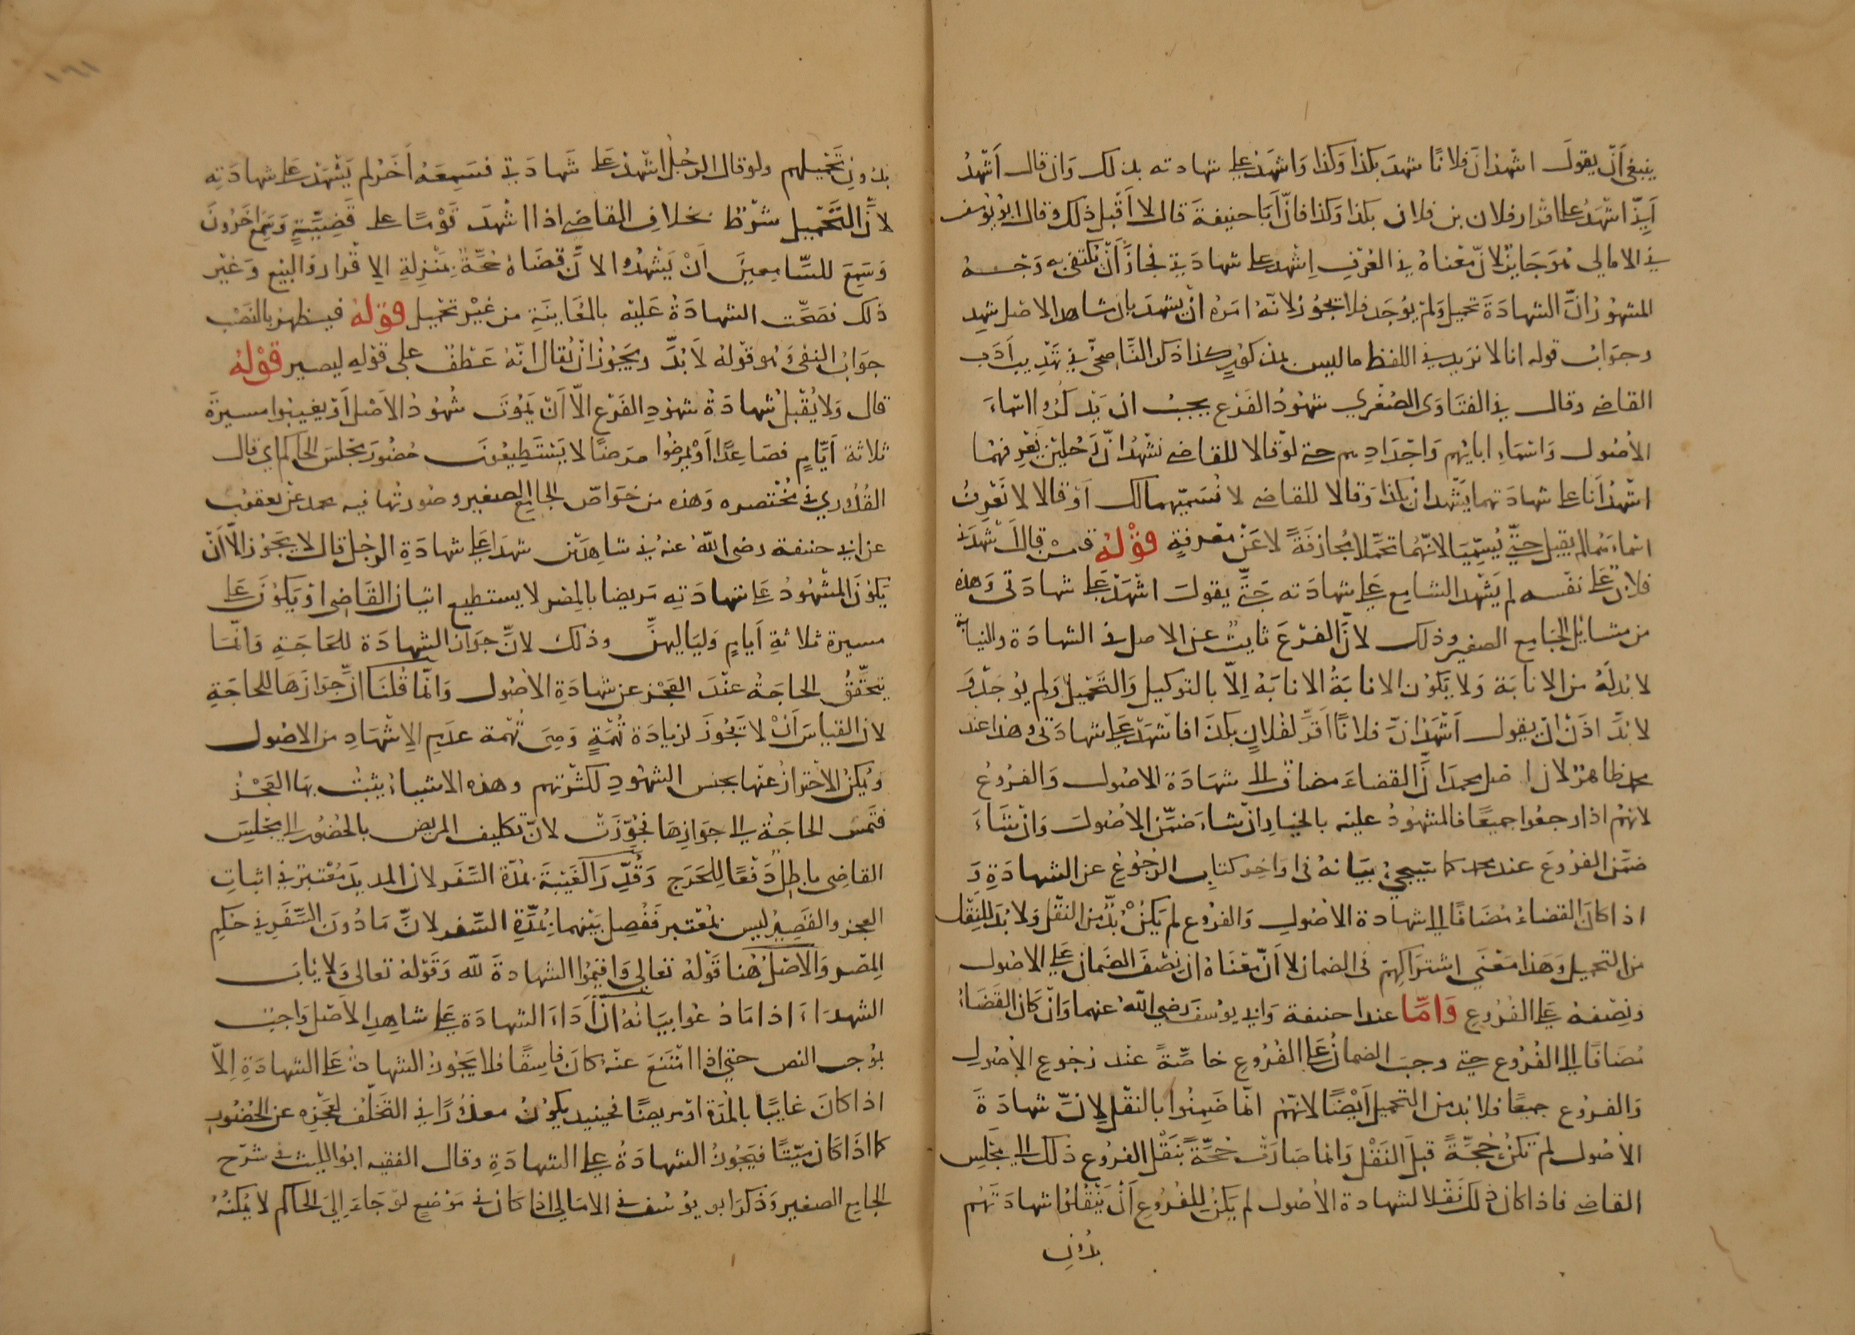 ينبغي أن يقول اشهد ان فلانا شهد بكذا وكذا واشهد على شهادته بذلك وان قال أشهد
اشهد على اقرار فلان بن فلان بكذا وكذا فان أبا حنيفة قال لا أقبل ذلك وقال ابو يوسف
في الامالي هو جايز لان معناه في العرف اشهد على شهادتي فجاز أن يكتفي به وجه
المشهور ان الشهادة تحميل ولم يوجد فلا تجوز لانه امره ان يشهد بان شاهد الاصل شهد
وجواب قوله انا لا نزيد في اللفظ ما ليس بمذكور كذا ذكر الناصحي في تهذيب أدب
القاضي وقال في الفتاوى الصغري شهود الفرع يجب ان يذكروا اسماء
الأصول واسماء ابايهم واجدادهم حتى لو قالا للقاضي نشهد ان رجلين نعرفهما
اشهدانا على شهادتهما يشهدان بكذا وقالا للقاضي لا نسميهما لك او قالا لا نعرف
اسماءهما لم يقبل حتى يسميا لانهما تحملا مجازفة لا عن معرفة قوله فمن قال أشهدني
فلان على نفسه لم يشهد السامع على شهادته حتى يقول اشهد على شهادتي وهذه
من مسائل الجامع الصغير وذلك لان الفرع نايب عن الاصل في الشهادة والنيابة
لا بد له من الانابة ولا يكون الانابة الانابة الا بالتوكيل والتحميل ولم يوجد و
لا بد اذن ان يقول أشهد ان فلانا أقر لفلان بكذا فاشهد على شهادتي وهذا عند
محمد ظاهر لان اصل محمد ان القضاء مضاف الى شهادة الاصول والفروع
لانهم اذا رجعوا جميعا فالمشهود عليه بالخيار ان شاء ضمن الاصول وان شاء
ضمن الفروع عند محمد كما سيجئ بيانه في اواخر كتاب الرجوع عن الشهادة و
اذا كان القضاء مضافا الى شهادة الاصول والفروع لم يكن بد من النقل ولا بد للنقل
من التحميل وهذا معنى اشتراكهم في الضمان لا ان معناه ان نصف الضمان على الاصول
ونصفه على الفروع واما عند ابي حنيفة وابي يوسف رضي الله عنهما وان كان القضاء
مضافا الى الفروع حتى وجب الضمان على الفروع خاصة عند رجوع الأصول
والفروع جميعا فلا بد من التحميل أيضا لانهم انما ضمنوا بالنقل لان شهادة
الأصول لم تكن حجة قبل النقل وانما صارت حجة بنقل الفروع ذلك الى مجلس
القاضي فاذا كان ذلك نقلا لشهادة الأصول لم يكن للفروع أن ينقلوا شهادتهم
بدون
١٦١
بدون تحميلهم ولو قال الرجل اشهد على شهادتي فسمعه أخر لم يشهد على شهادته
لأن التحميل شرط بخلاف القاضي اذا اشهد قوما على قضية وسمع اخرون
وسع للسامعين أن يشهدوا لان قضاه حجة بمنزلة الاقرار والبيع وغير
ذلك فصحت الشهادة عليه بالمعاينة من غير تحميل قوله فيظهر بالنصب
جواب النفي وهو قوله لا بد ويجوز ان يقال انه عطف على قوله ليصير قوله
قال ولا يقبل شهادة شهود الفرع الا أن يموت شهود الأصل أو يغيبوا مسيرة
ثلاثة أيام فصاعدا أو يمرضوا مرضا لا يستطيعون حضور مجلس الحاكم اي قال
القدوري في مختصره وهذه من خواص الجامع الصغير وصورتها فيه محمد عن يعقوب
عن ابي حنيفة رضي الله عنه في شاهدين شهدا على شهادة الرجل قال لا يجوز الا أن
يكون المشهود على شهادته مريضا بالمصر لا يستطيع اتيان القاضي او يكون على
مسيرة ثلاثة أيام ولياليهن وذلك لان جواز الشهادة للحاجة وانما
يتحقق الحاجة عند العجز عن شهادة الأصول وانما قلنا ان جوازها للحاجة
لان القياس أن لا تجوز لزيادة تهمة وهي تهمة عدم الاشهاد من الاصول
ويمكن الاحتراز عنها بجنس الشهود لكثرتهم وهذه الاشياء يثبت بها العجز
فتمس الحاجة الى جوازها فجوزت لان تكليف المريض بالحضور الى مجلس
القاضي باطل دفعا للحرج وقدر الغيبة بمدة السفر لان المديد معتبر في اثبات
العجز والقصير ليس بمعتبر ففصل بينهما بمدة السفر لان ما دون السفر في حكم
المصر والاصل هنا قوله تعالى واقيموا الشهادة لله وقوله تعالى ولا ياب
الشهداء اذا ما دعوا بيانه ان أداء الشهادة على شاهد الأصل واجب
بموجب النص حتى اذا امتنع عنه كان فاسقا فلا يجوز الشهادة على الشهادة إلا
اذا كان غايبا بالمدة او مريضا فحينيذ يكون معذورا في التخلف لعجزه عن الحضور
كما اذا كان ميتا فيجوز الشهادة على الشهادة وقال الفقيه ابو الليث في شرح
الجامع الصغير وذكر ابو يوسف في الامالي اذا كان في موضع لو جاء إلى الحاكم لا يمكنه